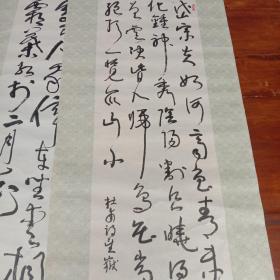 岱宗夫如何齊魯青未
化鍾神秀陰陽割昏曉盪
生層雲決眥入歸鳥會當
絕頂一覽众山小
杜甫詩望嶽
人家停車坐愛楓
霜葉紅於二月